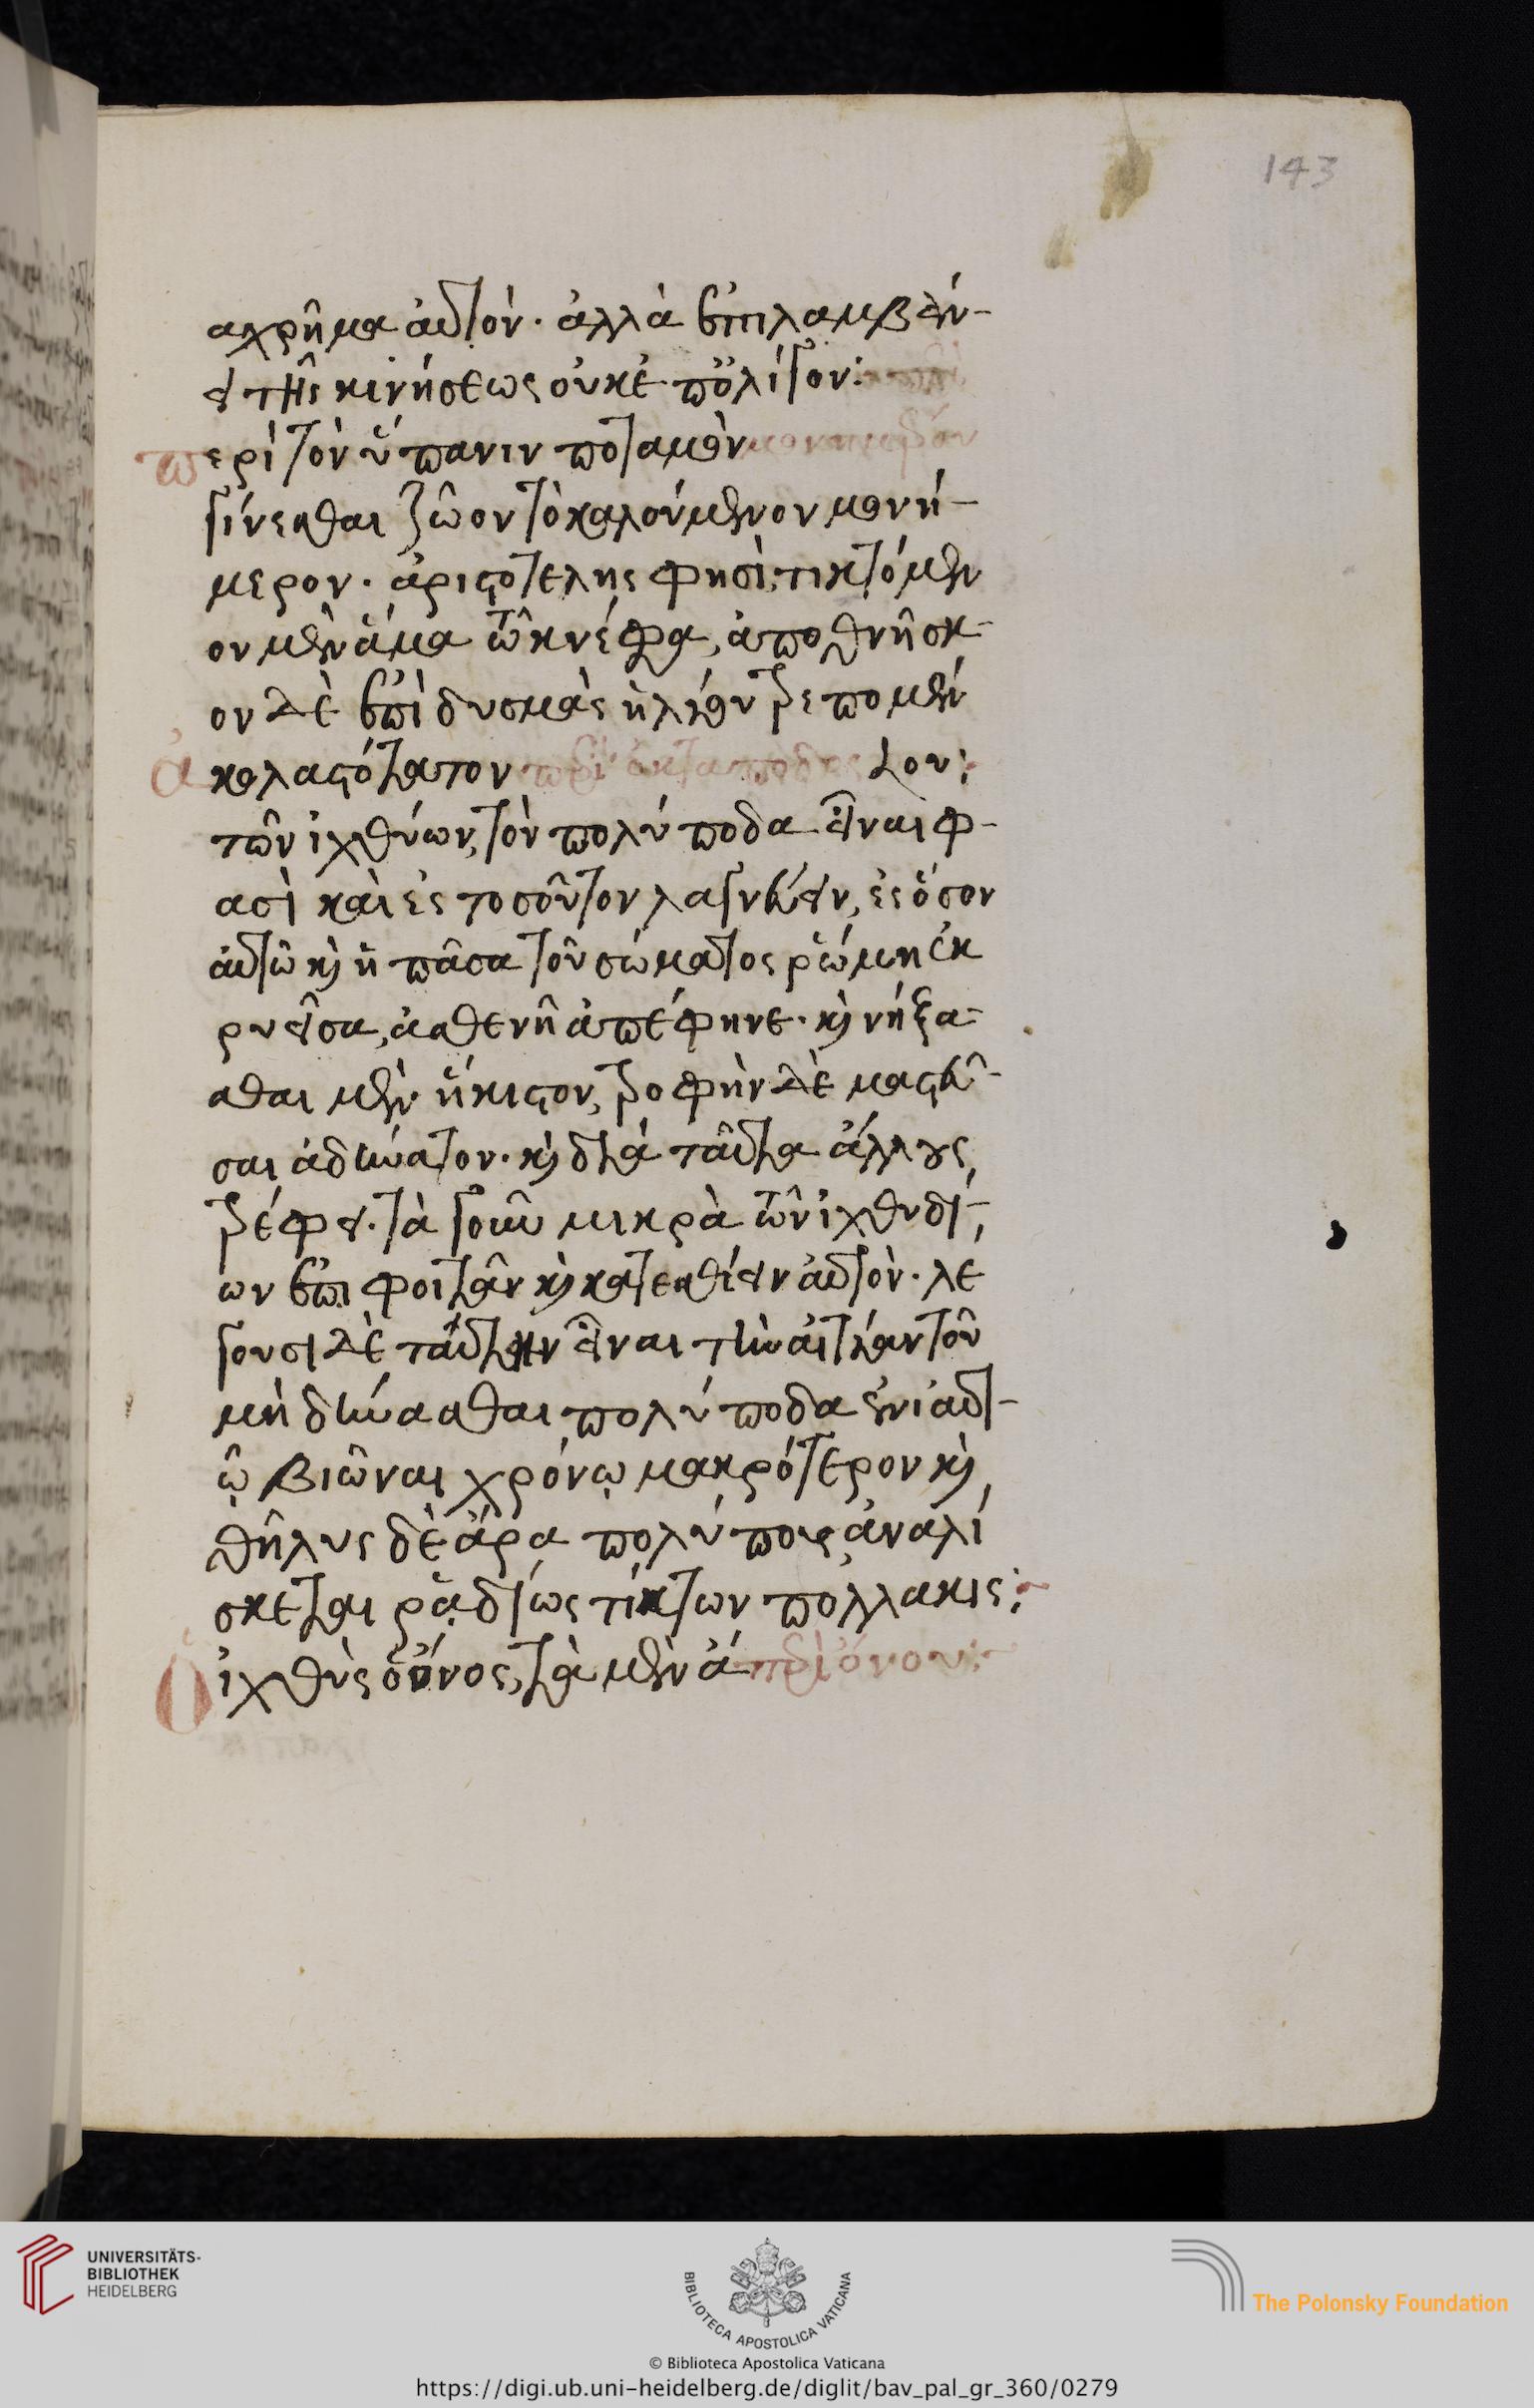 143
αχρῆμα αὐτὸν· ἀλλὰ ἐπιλαμβάν-
ει τῆς κινήσεως οὐκέ
περὶ τὸν ὕπανιν ποταμὸν
γίνεσθαι ζῶον τὸ καλούμενον μονή-
μερον· ἀριστοτέλης φησὶ, τικτόμεν
ον μὲν ἅμα τῶ κνέφα, ἀποθνῆσκ-
ον δὲ ἐπὶ δυσμὰς ἡλίου τρεπομέν
ἀκολαστότατον περὶ ὀκταποδος ου:
τῶν ἰχθύων, τὸν πολύποδα εἶναι φ-
ασὶ καὶ ἐς τοσοῦτον λαγνεύειν, ἐς ὅσον
αὐτῶ κὴ ἡ πᾶσα τοῦ σώματος ῥώμη ἐκ
ρυεῖσα, ἀσθενῆ ἀπέφηνε· κὴ νήξα-
σθαι μὲν ἥκιστον, τροφὴν δὲ μαστεῦ-
σαι ἀδύνατον· κὴ διὰ ταῦτα ἄλλους
τρέφει· τὰ γοῦν μικρὰ τῶν ἰχθυδί-
ων ἐπιφοιτᾶν κὴ κατεσθίειν αὐτὸν· λέ
γουσι δὲ ταύτην εἶναι τὴν αἰτίαν τοῦ
μὴ δύνασθαι πολύποδα ἐνιαυτ-
ῶ βιῶναι χρόνῳ μακρότερον κὴ
θῆλυς δὲ ἄρα πολύπους ἀναλί
σκεται ῥᾳδίως τίκτων πολλακις:
Ὁ ἰχθὺς ὁ ὄνος, τὰ μὲν ἄ περὶ ὄνου:
UNIVERSITÄTS-
BIBLIOTHEK
HEIDELBERG
BIBLIOTECA APOSTOLICA VATICANA
The Polonsky Foundation
© Biblioteca Apostolica Vaticana
https://digi.ub.uni-heidelberg.de/diglit/bav_pal_gr_360/0279